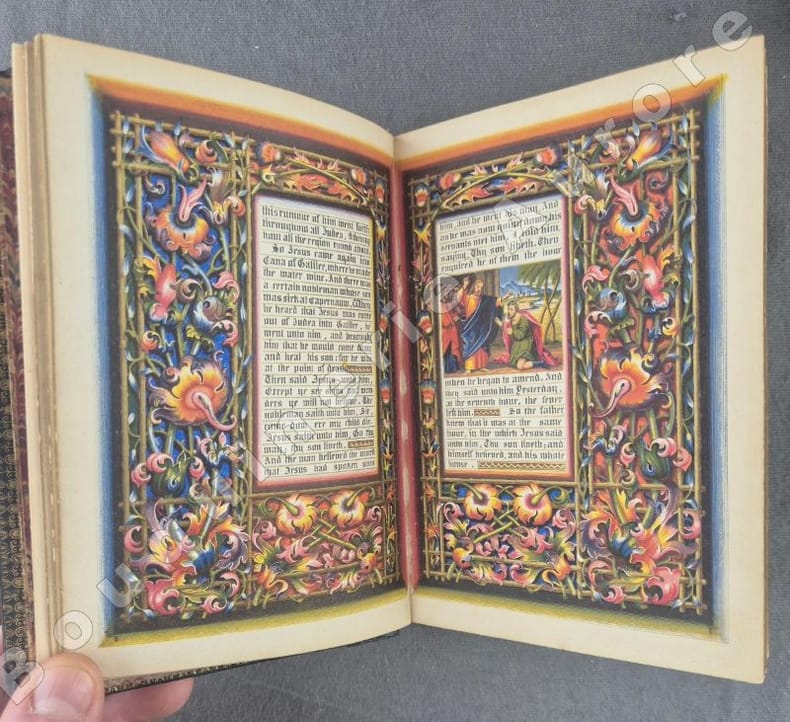 this rumour of him went forth
throughout all Judea, & throug
hout all the region round about
So Jesus came again into
Cana of Galilee, where he made
the water wine. And there was
a certain nobleman whose son
was sick at Capernaum. When
he heard that Jesus was come
out of Judea into Galilee, he
went unto him, and besought
him that he would come
and heal his son: for he was
at the point of death
Then said Jesus unto him,
Except ye see signs and won
ders ye will not believe. The
nobleman saith unto him, Sir,
come down ere my child die.
Jesus saith unto him, Go thy
way, thy son liveth.
And the man believed the word
that Jesus had spoken unto
him, and he went his way. And
as he was now going down, his
servants met him, and told him
saying, Thy son liveth. Then
enquired he of them the hour
when he began to amend. And
they said unto him Yesterday,
at the seventh hour, the fever
left him. So the father
knew that it was at the same
hour, in the which Jesus said
unto him, Thy son liveth; and
himself believed, and his whole
house.
Bouquinerie Aurore